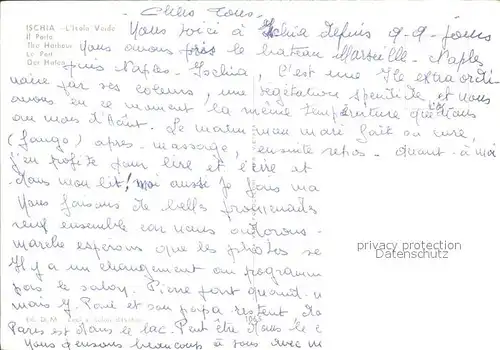 Chers tous -
ISCHIA - L'Isola Verde
Il Porto
The Harbour
Le Port
Der Hafen
Nous voici à Ischia depuis q-q- jours
Nous avons pris le bateau Marseille - Naples
puis Naples - Ischia, C'est une Ile extraordi
naire par ses coleurs, une végétation spendide et nous
avons en ce moment la même température que
au mois d'Août. Le matin mon mari fait sa cure,
(fango) après - massage, ensuite repos - quant à moi
j'en profite pour lire et écrire et
dans mon lit! moi aussi je fais ma
Nous faisons de belles promenades
ensemble car nous
marche espérons que les photos se
Il y a un changement au programm
pas le salon. Pierre part quand
mais y. Paul et son papa restent, do
Paris est dans le lac. Peut être dans le c
Nous pensons beaucoup à vous avec
privacy protection
DatenSchutz